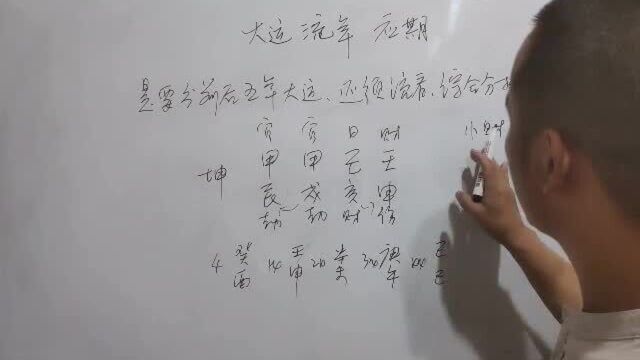 大运 流年 应期
是要分前后五年大运、还须流君、综合分
官 官 日 财
甲 甲 己 壬
坤
辰 戌 亥 申
劫 劫 财 伤
4 癸酉 14 壬申 24 辛未 34 庚午 44 己巳